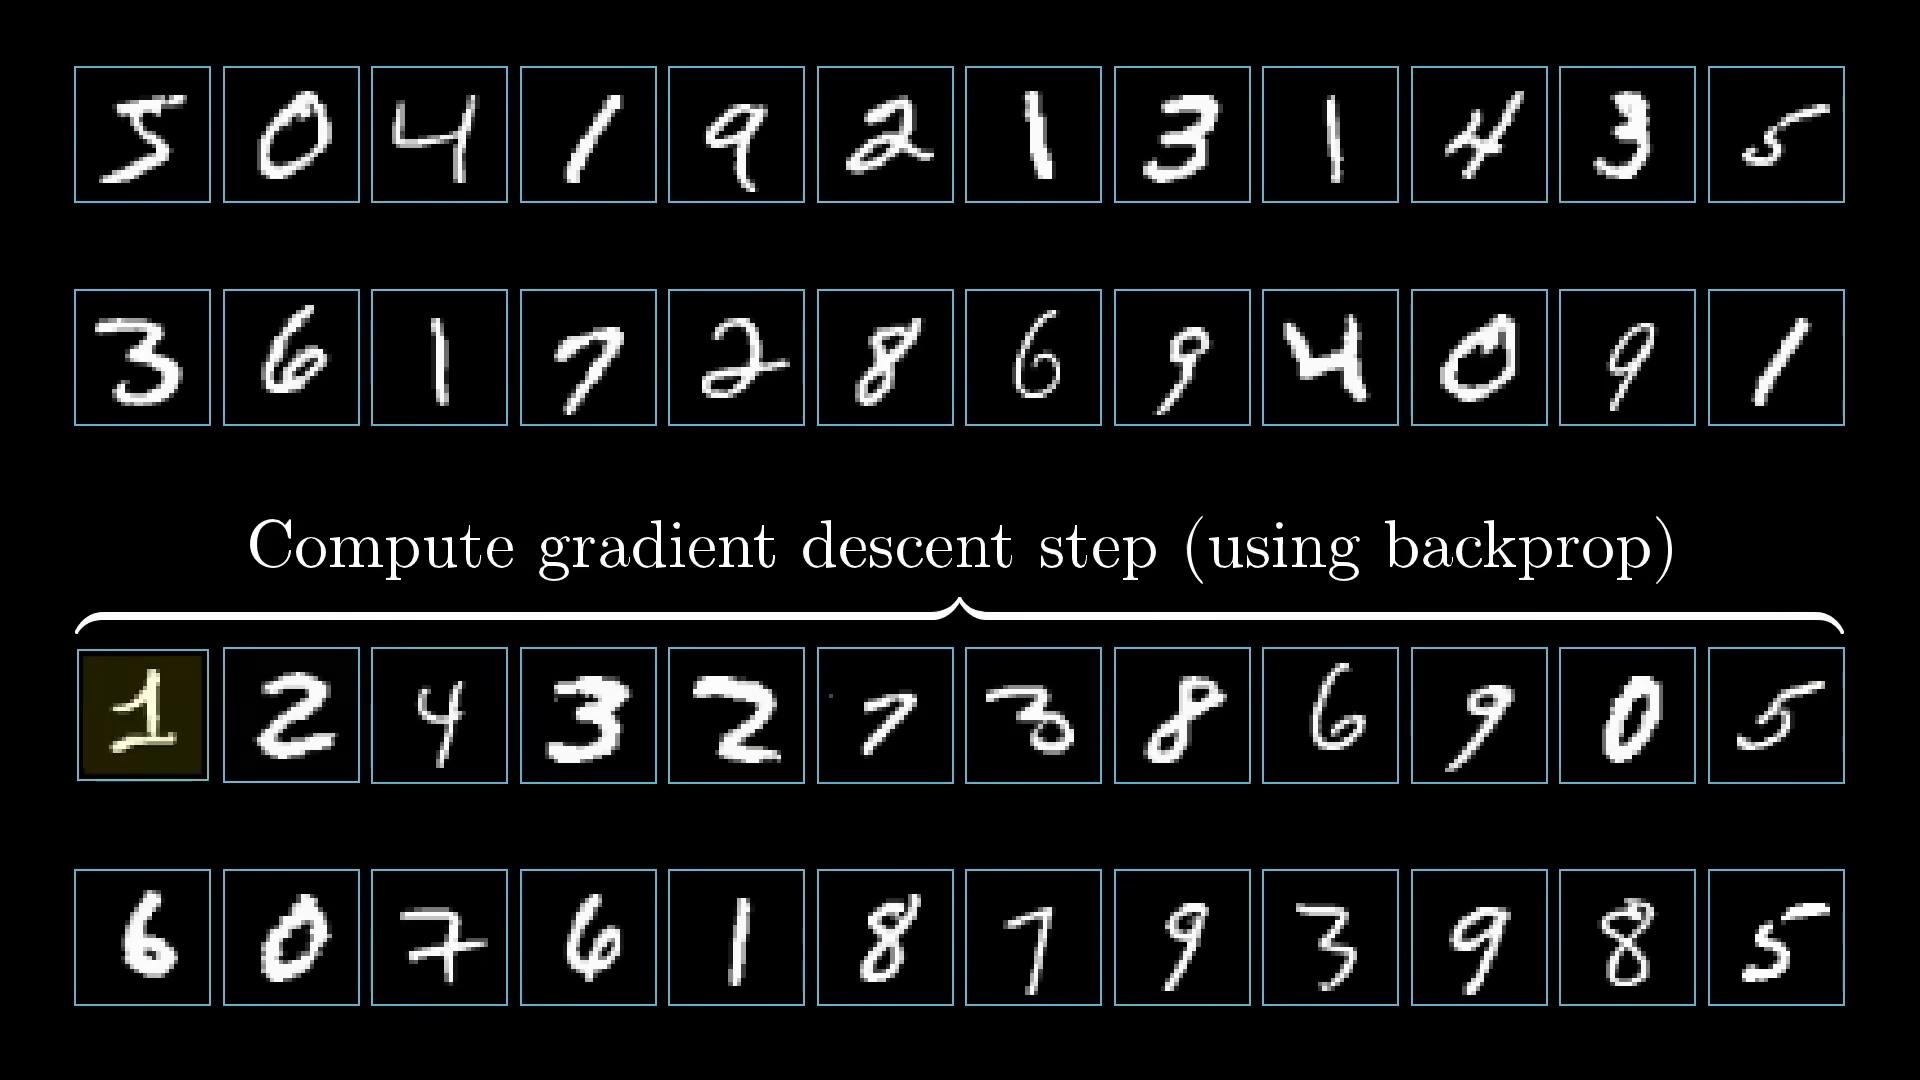 5 0 4 1 9 2 1 3 1 4 3 5
3 6 1 7 2 8 6 9 4 0 9 1
Compute gradient descent step (using backprop)
1 2 4 3 2 7 3 8 6 9 0 5
6 0 7 6 1 8 7 9 3 9 8 5